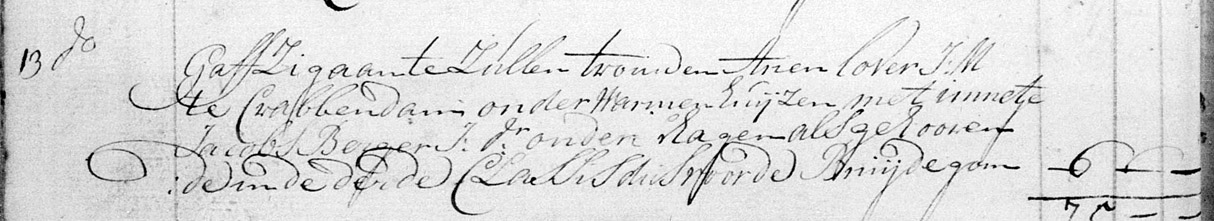 13 do Gaff Zig aan te Zullen trouwden Arien Cover J:M
te Crabbendam onder Warmenhuijzen met innete
Jacobs Berger J: dr onder Hagen als gehooren
:de in de derde Classis dus voor de Bruijdegom 6 – –